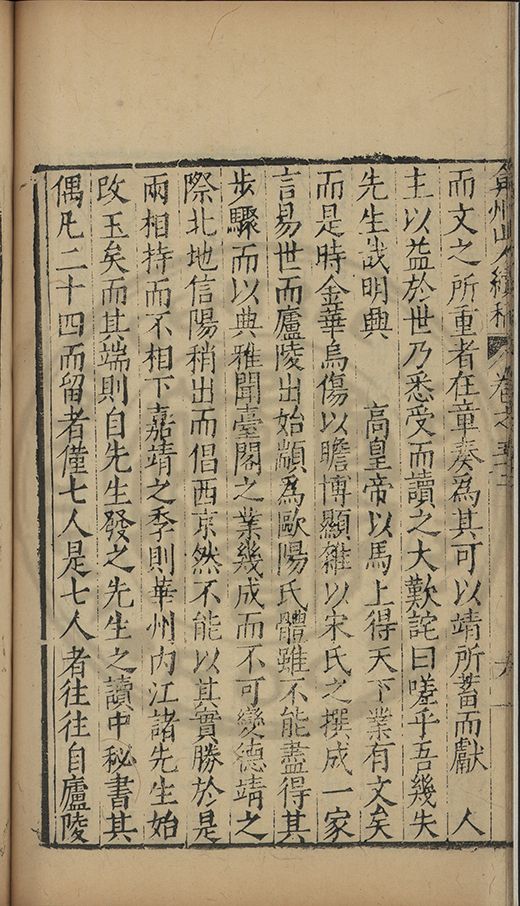 弇州山人續稿 卷之五十三 六
而文之所重者在章奏為其可以靖所蓄而獻 人
主以益於世乃悉受而讀之大歎詫曰嗟乎吾幾失
先生哉明興 高皇帝以馬上得天下業有文矣
而是時金華烏傷以瞻博顯雖以宋氏之撰成一家
言易世而廬陵出始顓為歐陽氏體雖不能盡得其
步驟而以典雅聞臺閣之業幾成而不可變德靖之
際北地信陽稍出而倡西京然不能以其實勝於是
兩相持而不相下嘉靖之季則華州內江諸先生始
改玉矣而其端則自先生發之先生之讀中秘書其
偶凡二十四而留者僅七人是七人者往往自廬陵